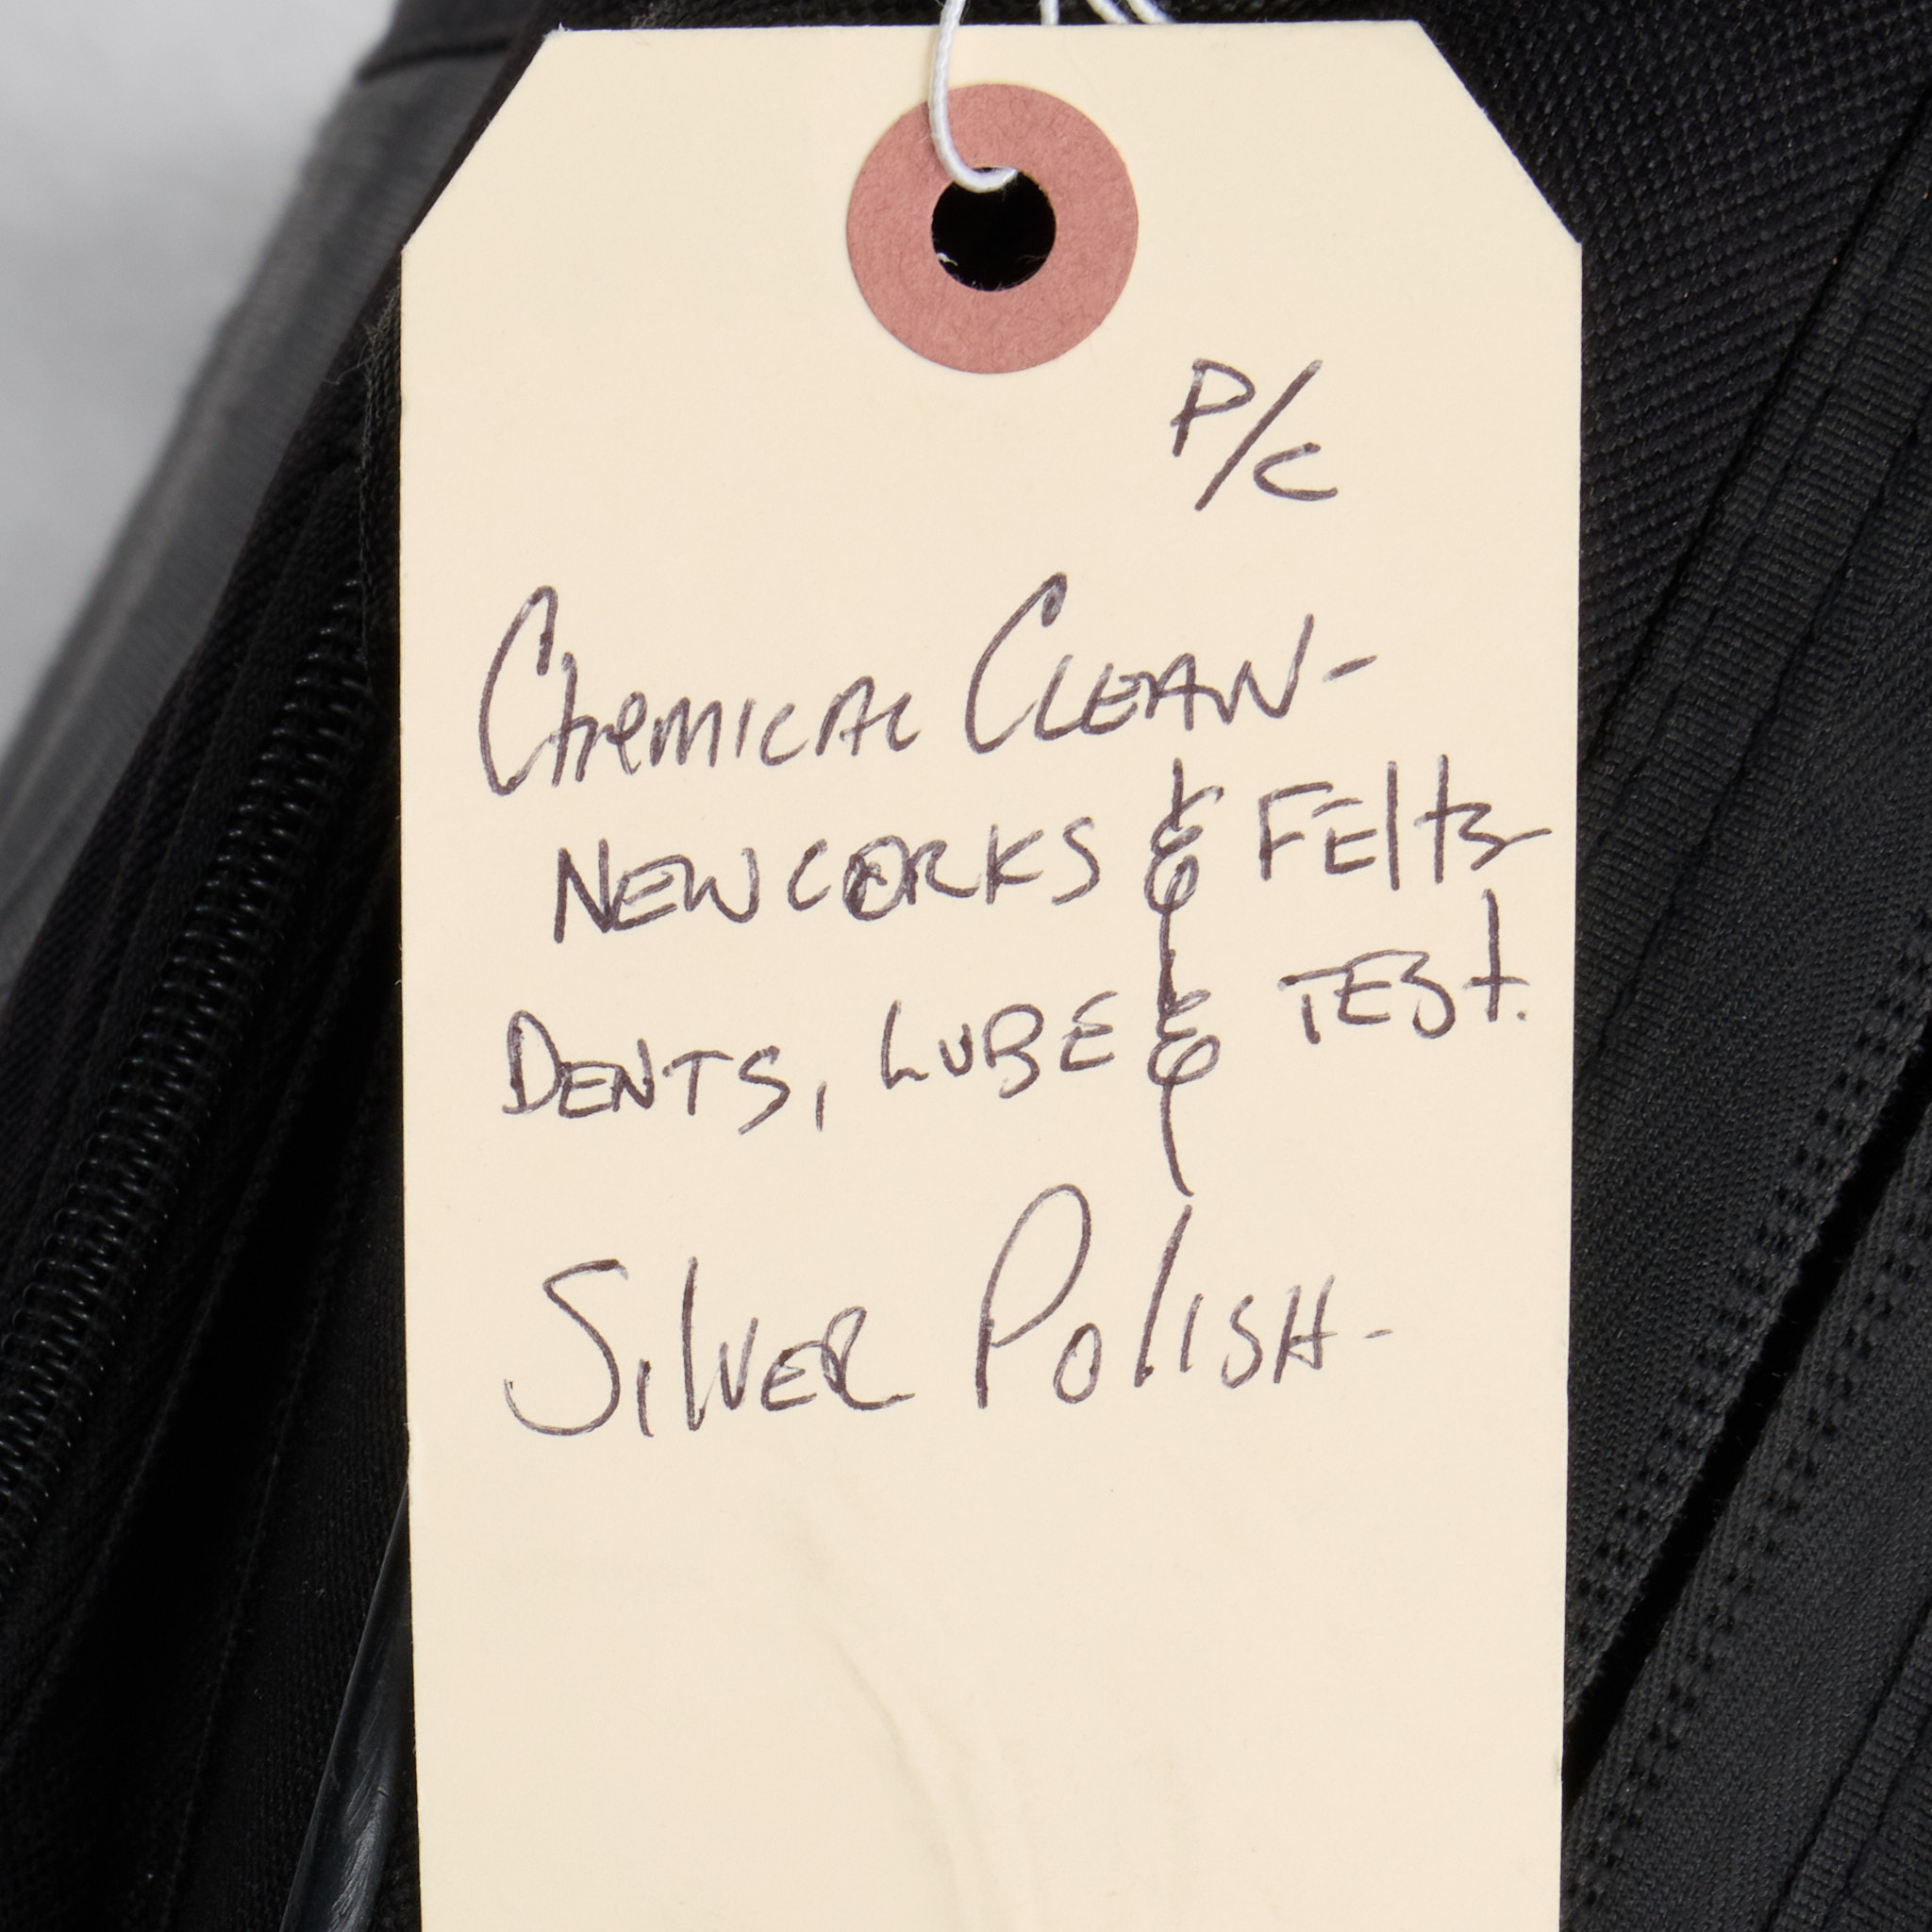 P/C
Chemical Clean-
New Corks & Felts
Dents, Lube & Test.
Silver Polish-